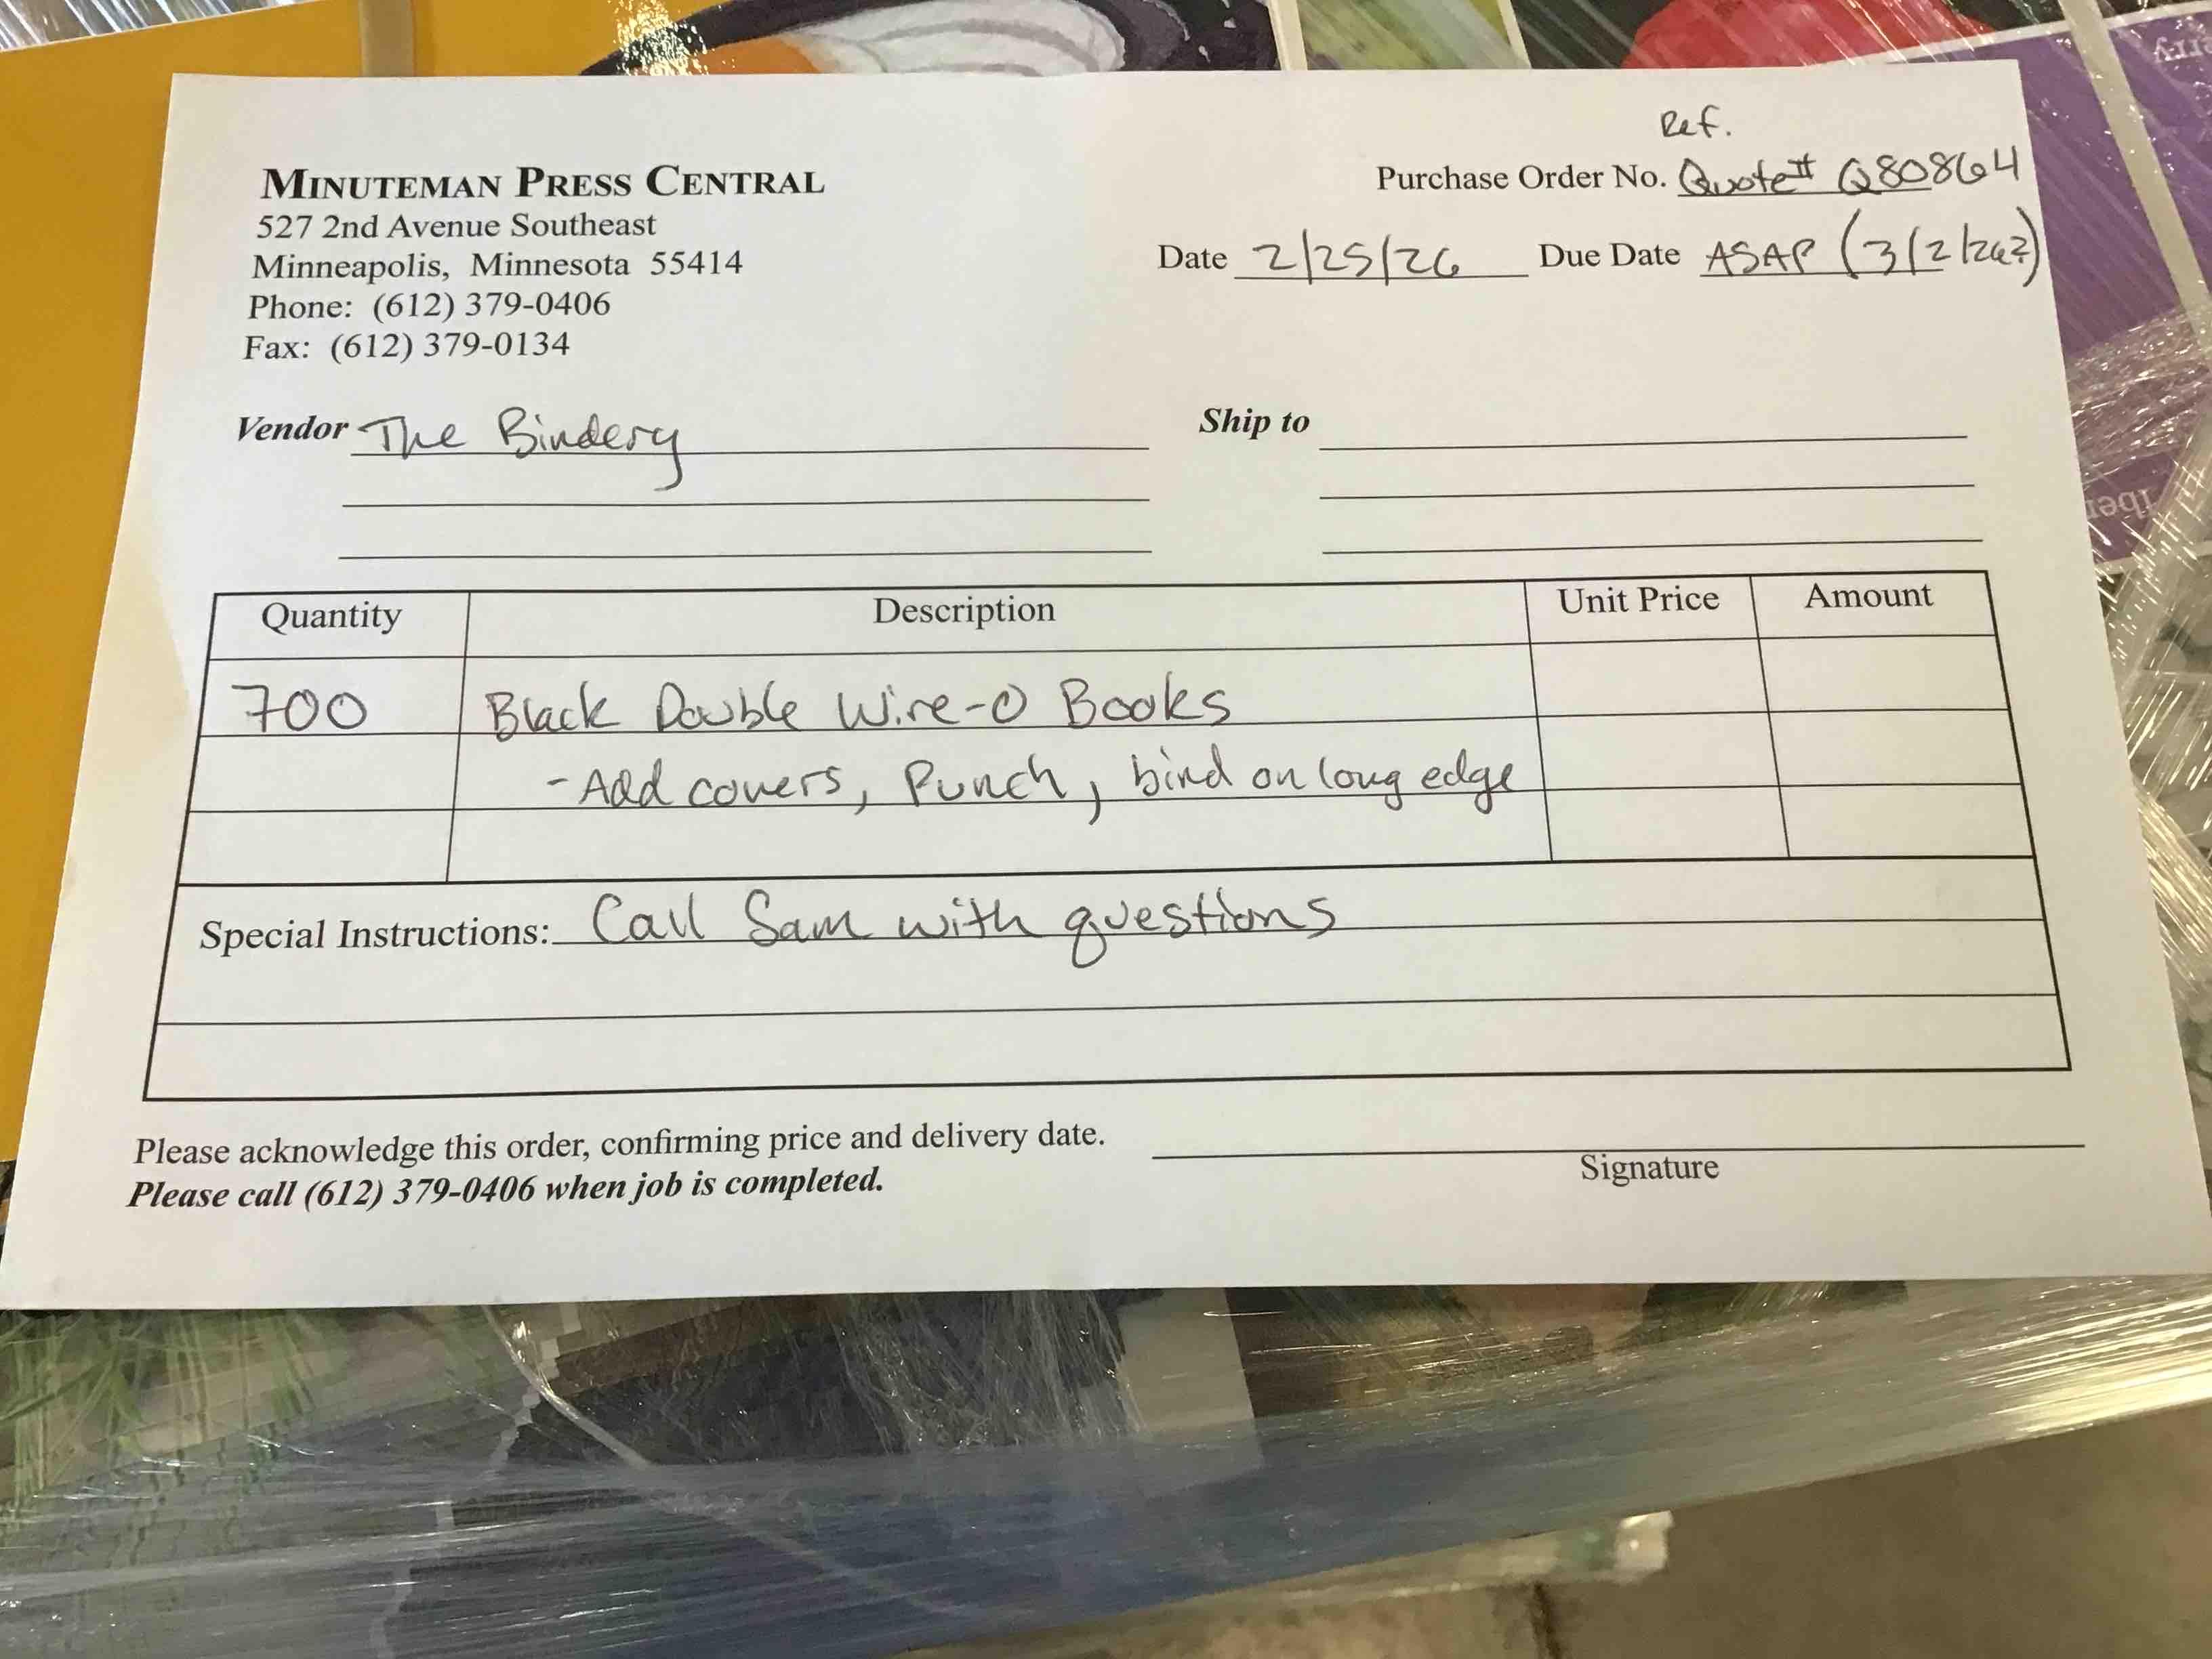 Ref.
MINUTEMAN PRESS CENTRAL
527 2nd Avenue Southeast
Minneapolis, Minnesota 55414
Phone: (612) 379-0406
Fax: (612) 379-0134
Purchase Order No. Quote# Q80864
Date 2/25/26 Due Date ASAP (3/2/26?)
Vendor The Bindery
Ship to
Quantity Description Unit Price Amount
700 Black Double Wire-O Books
- Add covers, Punch, bind on long edge
Special Instructions: Call Sam with questions
Please acknowledge this order, confirming price and delivery date.
Please call (612) 379-0406 when job is completed.
Signature